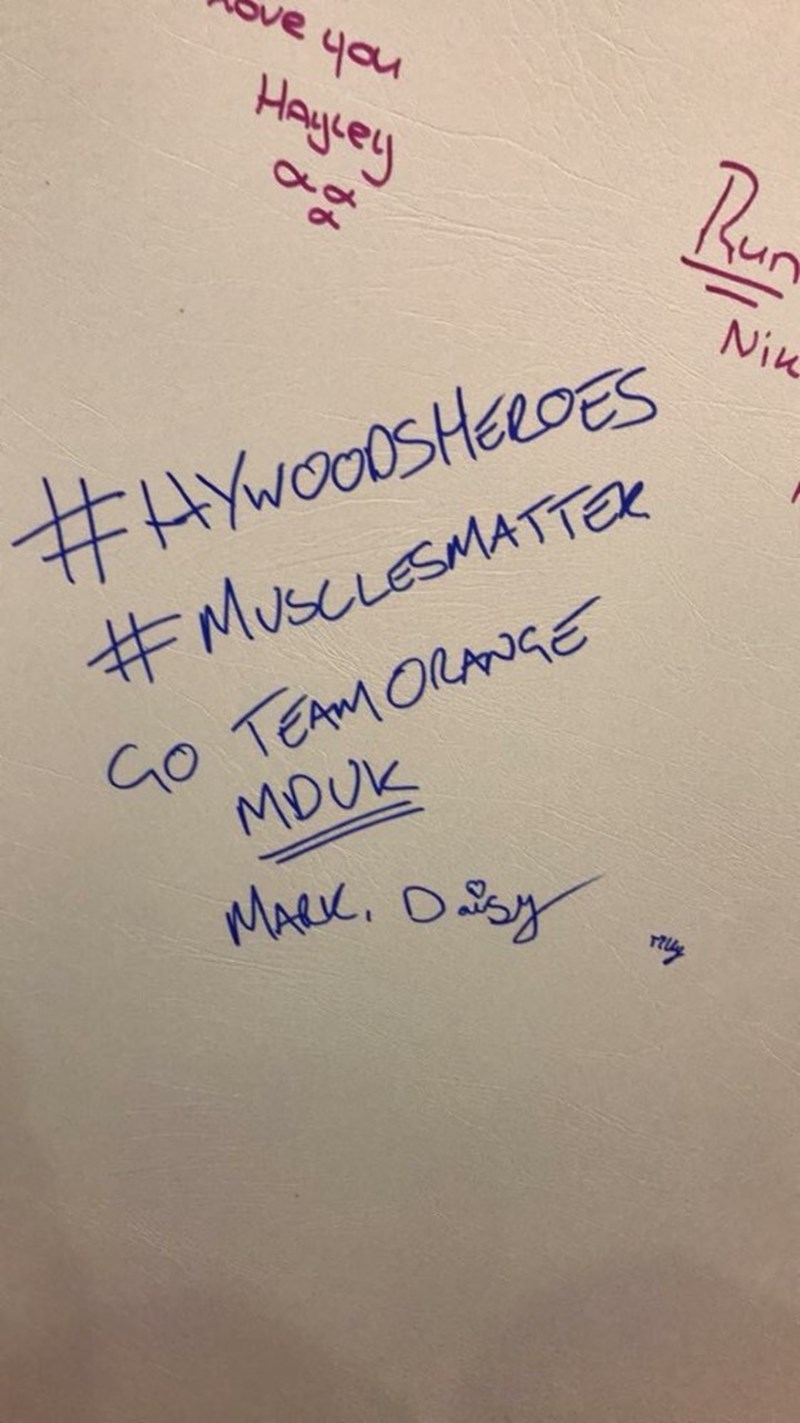 love you
Hayley
Run
Nik
#HYWOODSHEROES
#MUSCLESMATTER
GO TEAM ORANGE
MDUK
MARK. Daisy